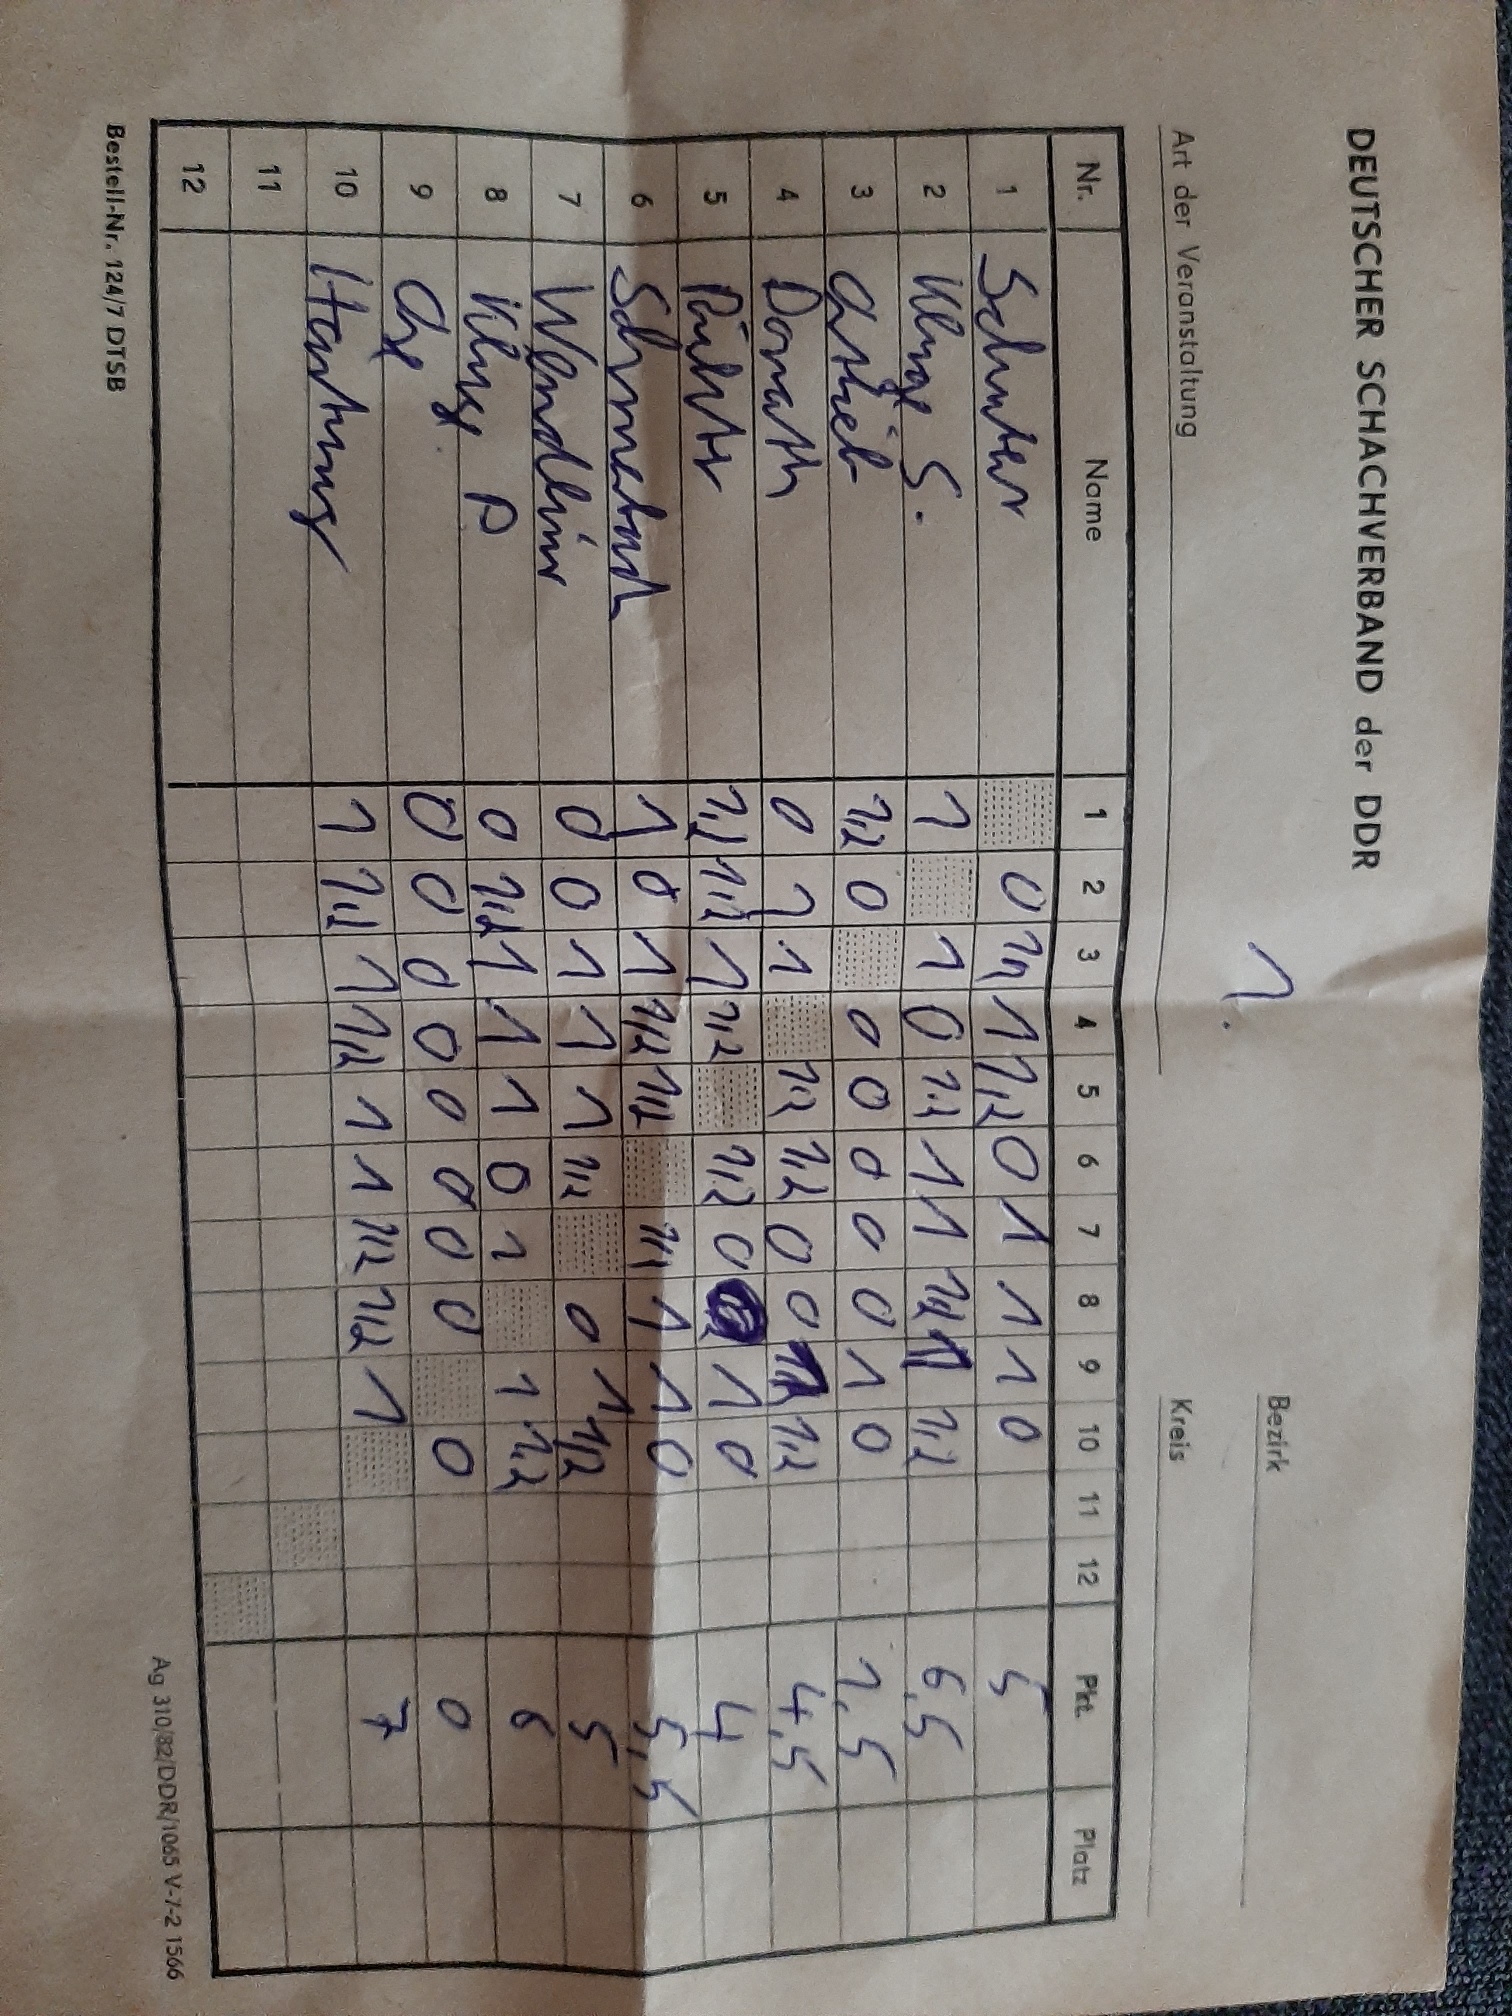 DEUTSCHER SCHACHVERBAND der DDR
1.
Bezirk
Art der Veranstaltung
Kreis
Nr. Name 1 2 3 4 5 6 7 8 9 10 11 12 Pkt. Platz
1 Schuster 0 1/2 1 1/2 0 1 1 1 0 5
2 Kluge S. 1 1 0 1/2 1 1 1/2 1 1/2 6,5
3 1/2 0 0 0 0 0 0 1 0 1,5
4 Donath 0 1 1 1/2 1/2 0 0 1/2 4,5
5 1/2 1/2 1 1/2 1/2 0 1 0 4
6 1 0 1 1/2 1/2 1/2 1 1 0 5,5
7 Wendler 0 0 1 1 1 1/2 0 1 1/2 5
8 Kluge P 0 1/2 1 1 1 0 1 1 1/2 6
9 0 0 0 0 0 0 0 0 0 0
10 Hartung 1 1/2 1 1/2 1 1 1/2 1/2 1 7
11
12
Bestell-Nr. 124/7 DTSB
Ag 310/82/DDR/1065 V-7-2 1566